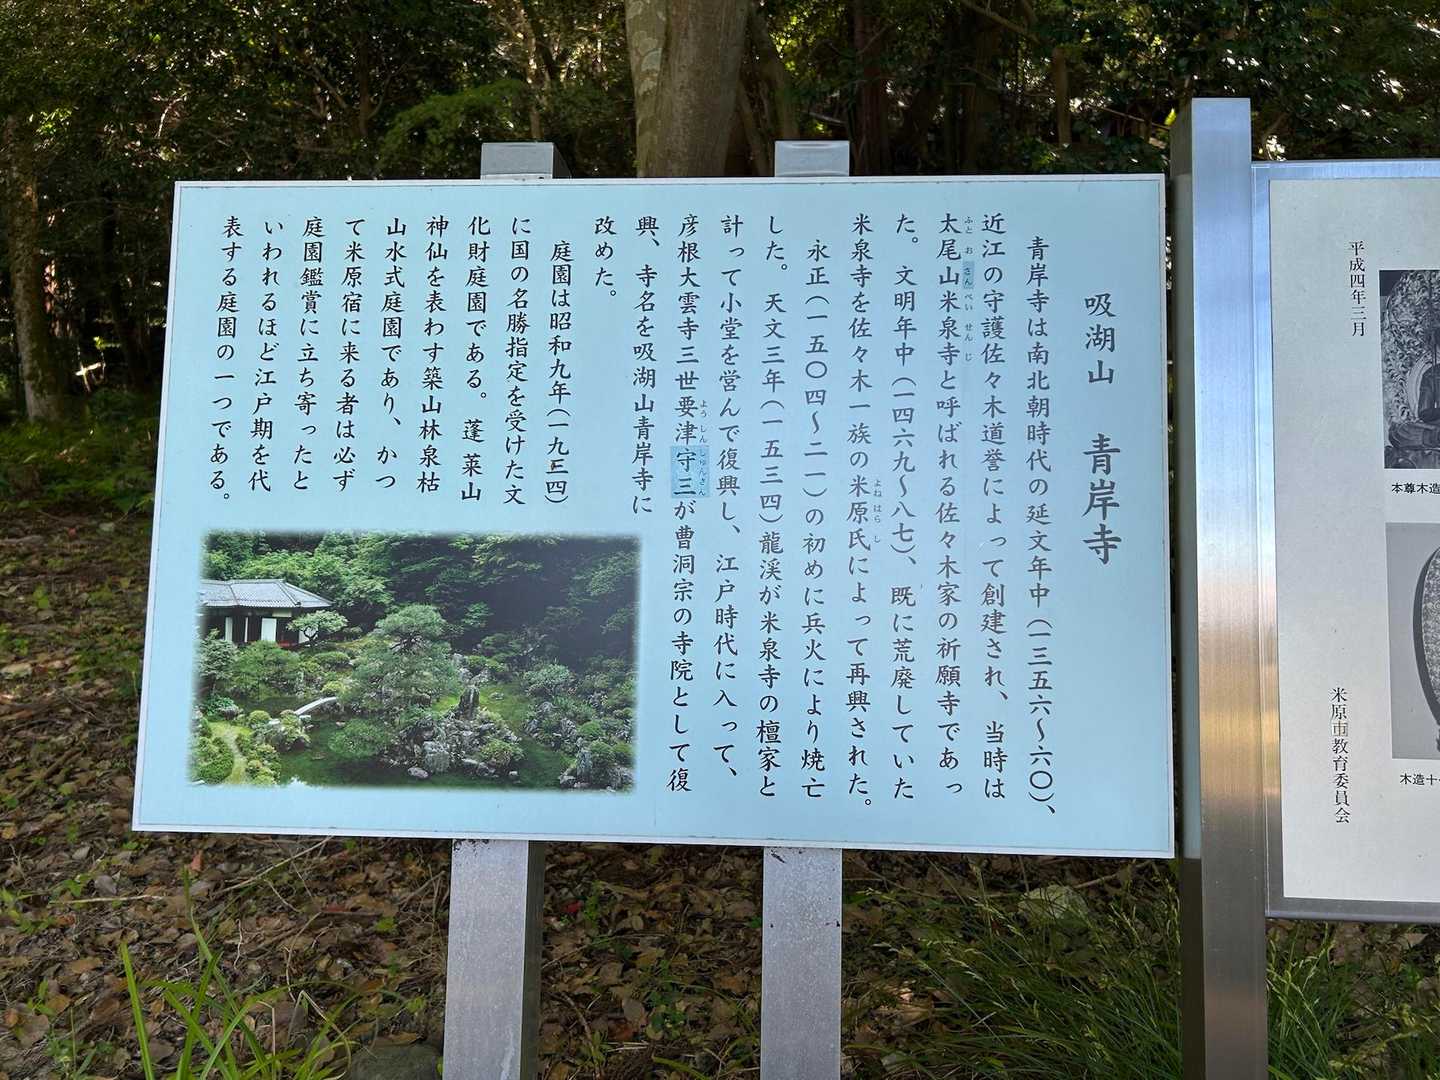 吸湖山 青岸寺
青岸寺は南北朝時代の延文年中(一三五六〜六〇)、
近江の守護佐々木道誉によって創建され、当時は
太尾山米泉寺と呼ばれる佐々木家の祈願寺であっ
ふとおさんべいせんじ
た。文明年中(一四六九〜八七)、既に荒廃していた
米泉寺を佐々木一族の米原氏によって再興された。
よねはらし
永正(一五〇四〜二一)の初めに兵火により焼亡
した。天文三年(一五三四)龍渓が米泉寺の檀家と
計って小堂を営んで復興し、江戸時代に入って、
彦根大雲寺三世要津守三が曹洞宗の寺院として復
ようしんしゅんさん
興、寺名を吸湖山青岸寺に
改めた。
庭園は昭和九年(一九三四)
に国の名勝指定を受けた文
化財庭園である。蓬莱山
神仙を表わす築山林泉枯
山水式庭園であり、かつ
て米原宿に来る者は必ず
庭園鑑賞に立ち寄ったと
いわれるほど江戸期を代
表する庭園の一つである。
本尊木造
木造十
平成四年三月
米原市教育委員会